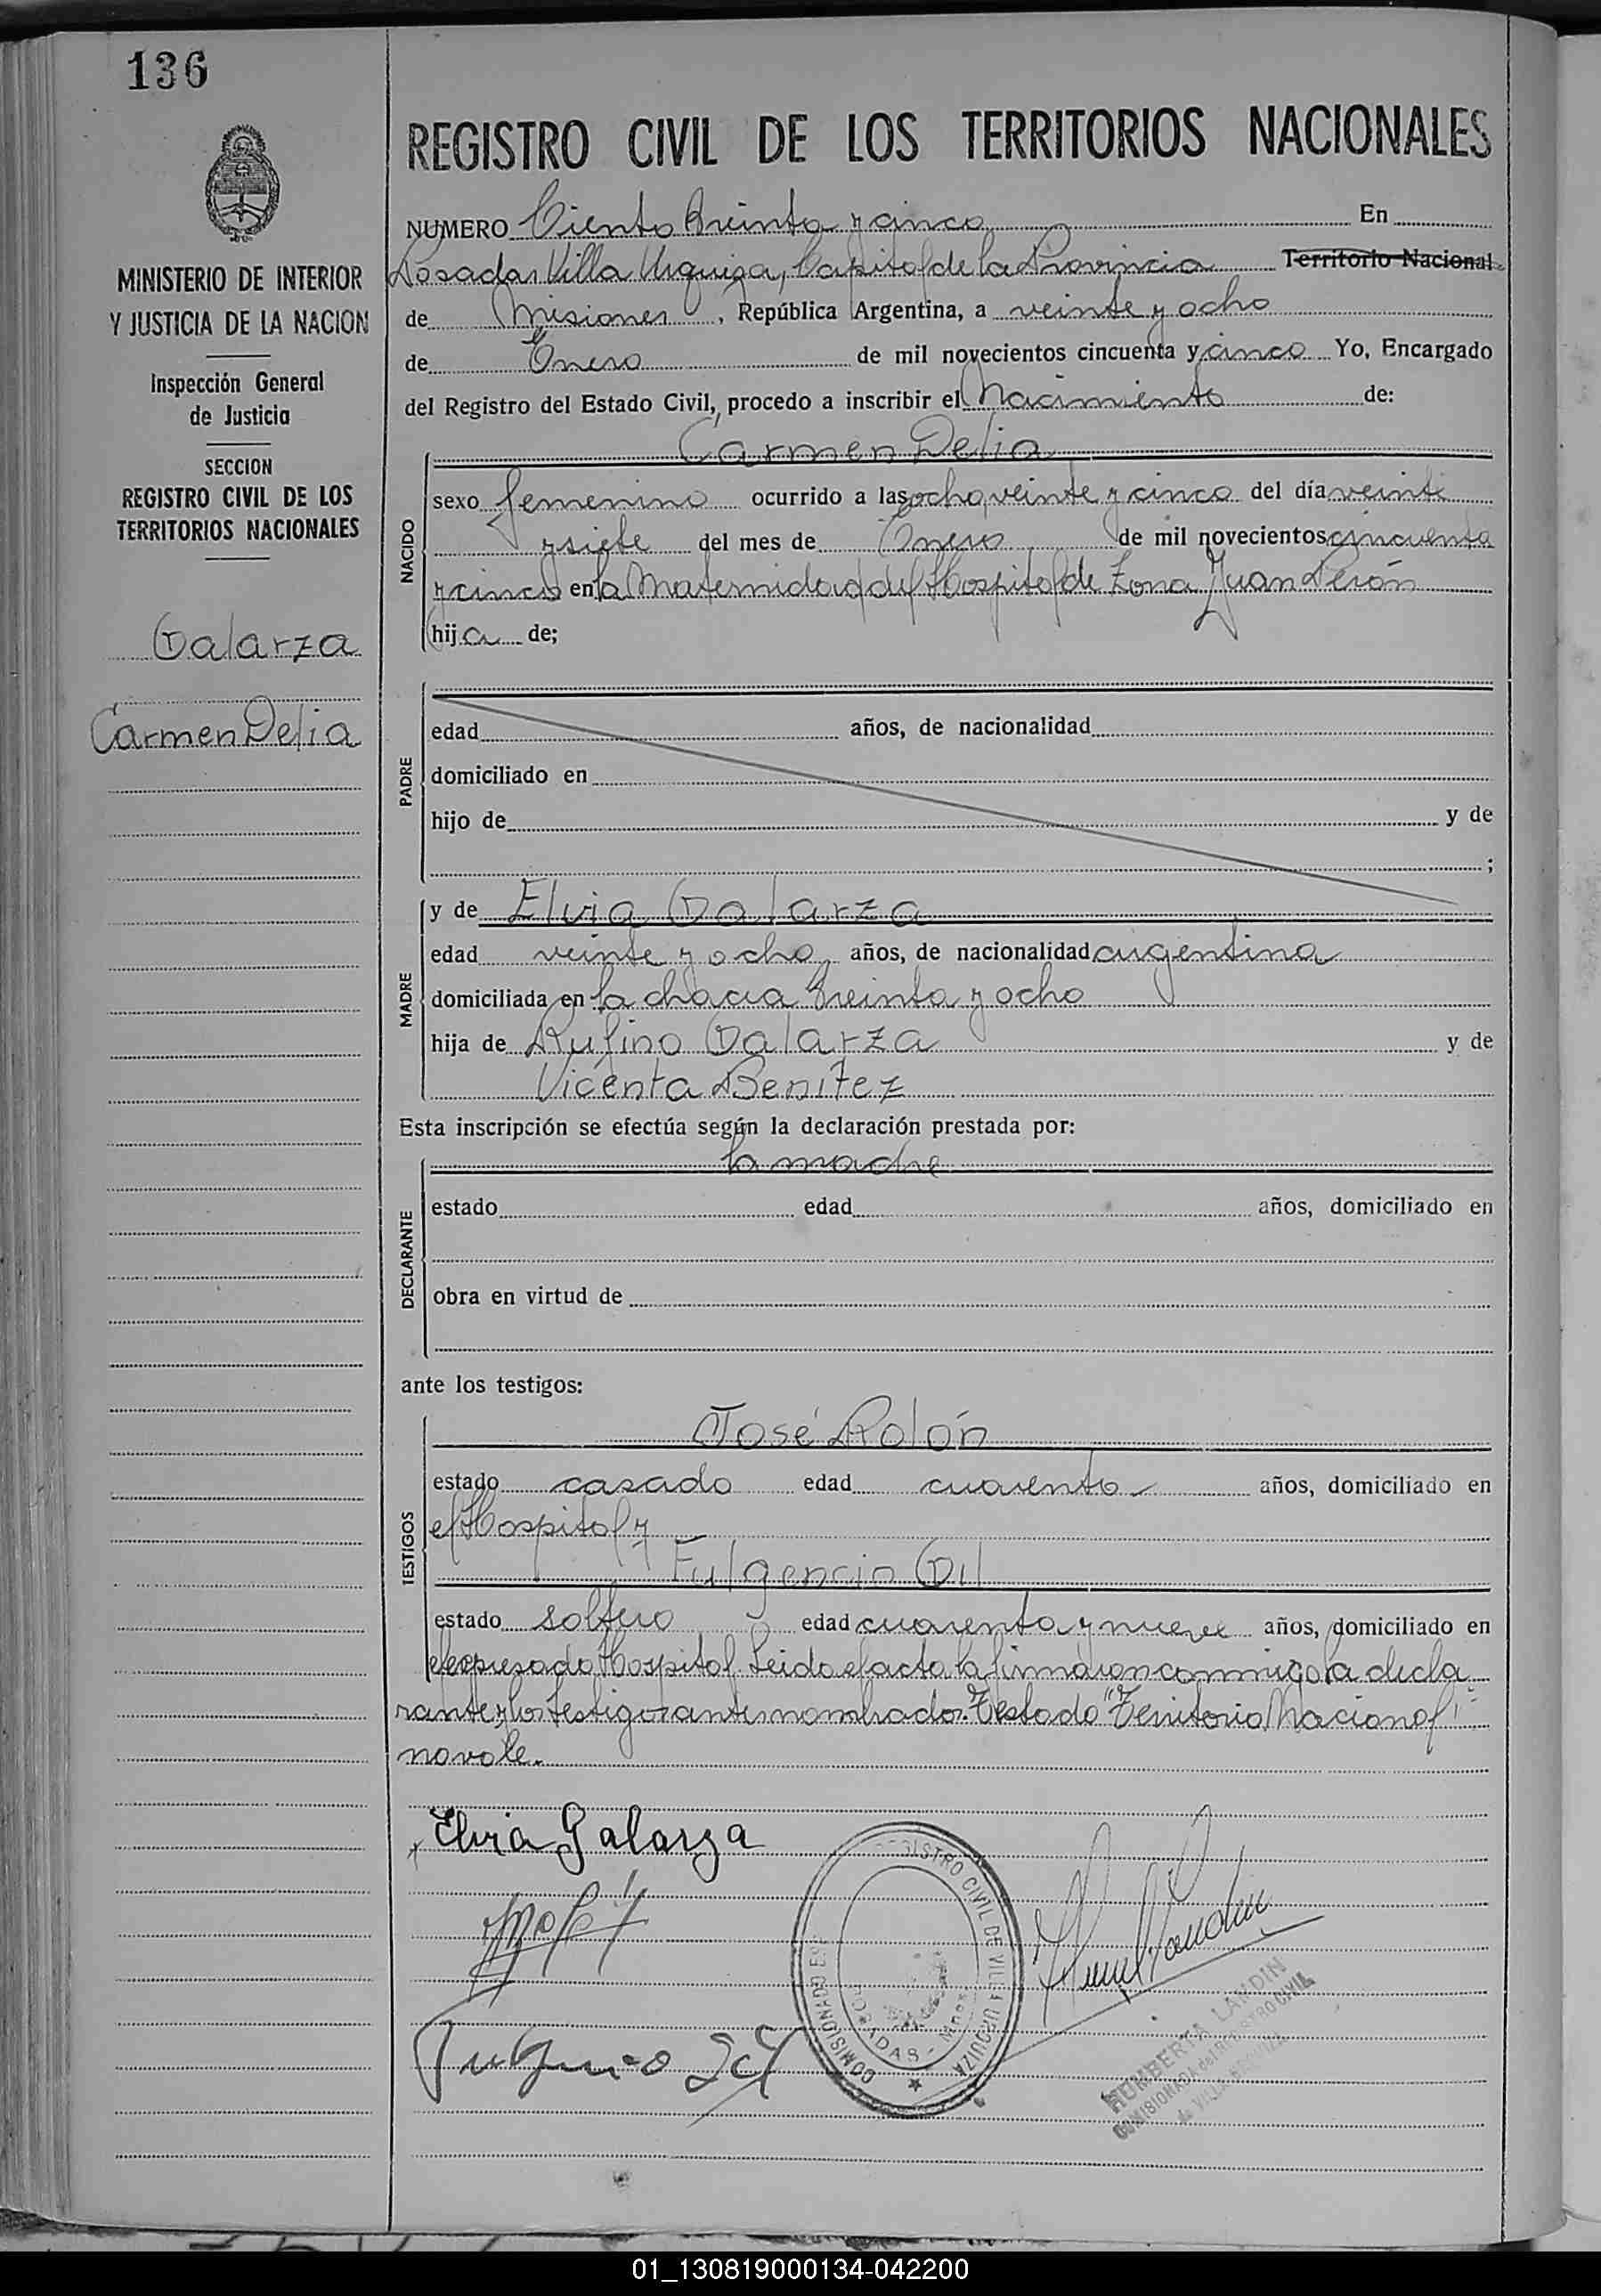 136
MINISTERIO DE INTERIOR
Y JUSTICIA DE LA NACION
Inspección General
de Justicia
SECCION
REGISTRO CIVIL DE LOS
TERRITORIOS NACIONALES
Galarza
Carmen Delia
REGISTRO CIVIL DE LOS TERRITORIOS NACIONALES
NUMERO Ciento treinta y cinco En
Posadas Villa Urquiza, Capital de la Provincia Territorio Nacional
de Misiones, República Argentina, a veinte y ocho
de Enero de mil novecientos cincuenta y cinco Yo, Encargado
del Registro del Estado Civil, procedo a inscribir el Nacimiento de:
Carmen Delia
NACIDO
sexo femenino ocurrido a las ocho, veinte y cinco del día veinte
y siete del mes de Enero de mil novecientos cincuenta
y cinco en la Maternidad del Hospital de Zona Juan Perón
hija de;
PADRE
edad años, de nacionalidad
domiciliado en
hijo de y de
;
MADRE
y de Elvia Galarza
edad veinte y ocho, años, de nacionalidad argentina
domiciliada en la chacra treinta y ocho
hija de Rufino Galarza y de
Vicenta Benítez
Esta inscripción se efectúa según la declaración prestada por:
la madre
DECLARANTE
estado edad años, domiciliado en
obra en virtud de
ante los testigos:
TESTIGOS
José Rolón
estado casado edad cuarenta años, domiciliado en
el Hospital y
Fulgencio Gil
estado soltero edad cuarenta y nueve años, domiciliado en
el expresado Hospital. Leida el acta la firmaron conmigo la decla
rante y los testigos antes nombrados. Testado "Territorio Nacional"
no vale.
Elvia Galarza
Fulgencio Gil
REGISTRO CIVIL DE VILLA URQUIZA
COMISIONADO
POSADAS - Mnes
HUMBERTA LANDIN
COMISIONADA del REGISTRO CIVIL
de VILLA URQUIZA
01_130819000134-042200